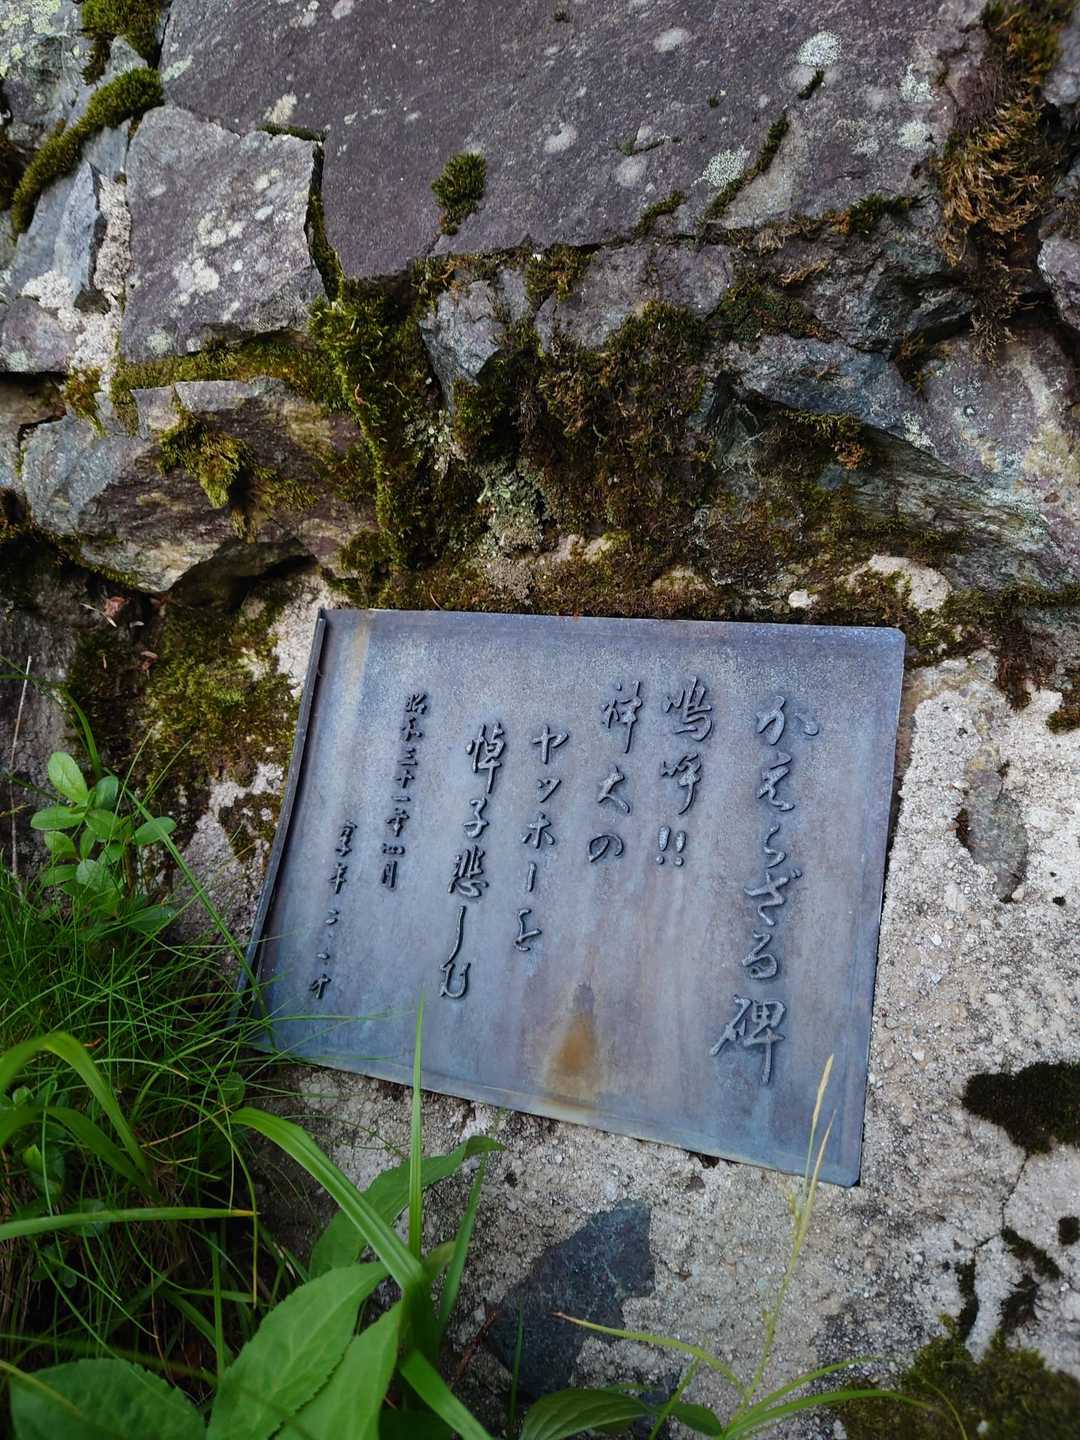 かえらざる碑
嗚呼!!
神大の
ヤッホーを
悼子悲しむ
昭和三十一年四月